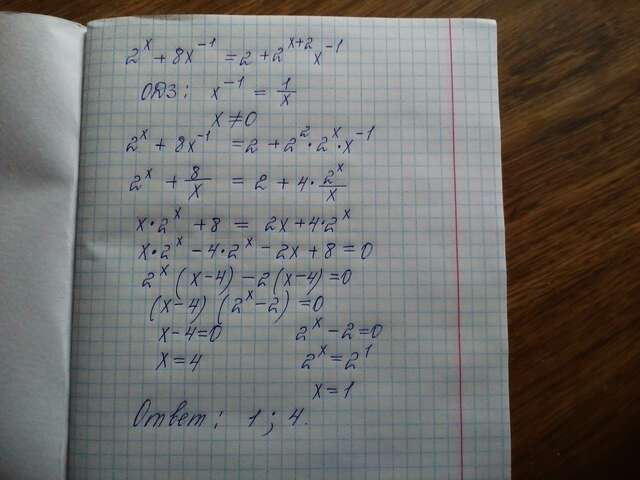 2ˣ + 8x⁻¹ = 2 + 2ˣ⁺² x⁻¹
ОДЗ: x⁻¹ = 1/x
x ≠ 0
2ˣ + 8x⁻¹ = 2 + 2² · 2ˣ · x⁻¹
2ˣ + 8/x = 2 + 4 · 2ˣ/x
x · 2ˣ + 8 = 2x + 4 · 2ˣ
x · 2ˣ − 4 · 2ˣ − 2x + 8 = 0
2ˣ (x−4) − 2(x−4) = 0
(x−4) (2ˣ−2) = 0
x−4=0 2ˣ−2=0
x=4 2ˣ=2¹
x=1
Ответ: 1; 4.